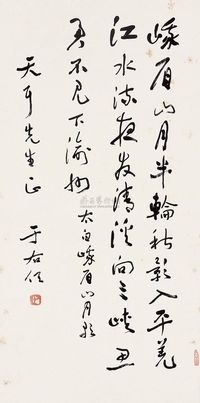 峨眉山月半轮秋影入平羌
江水流夜发清溪向三峡思
君不见下渝州 太白峨眉山月歌
天可先生正 于右任